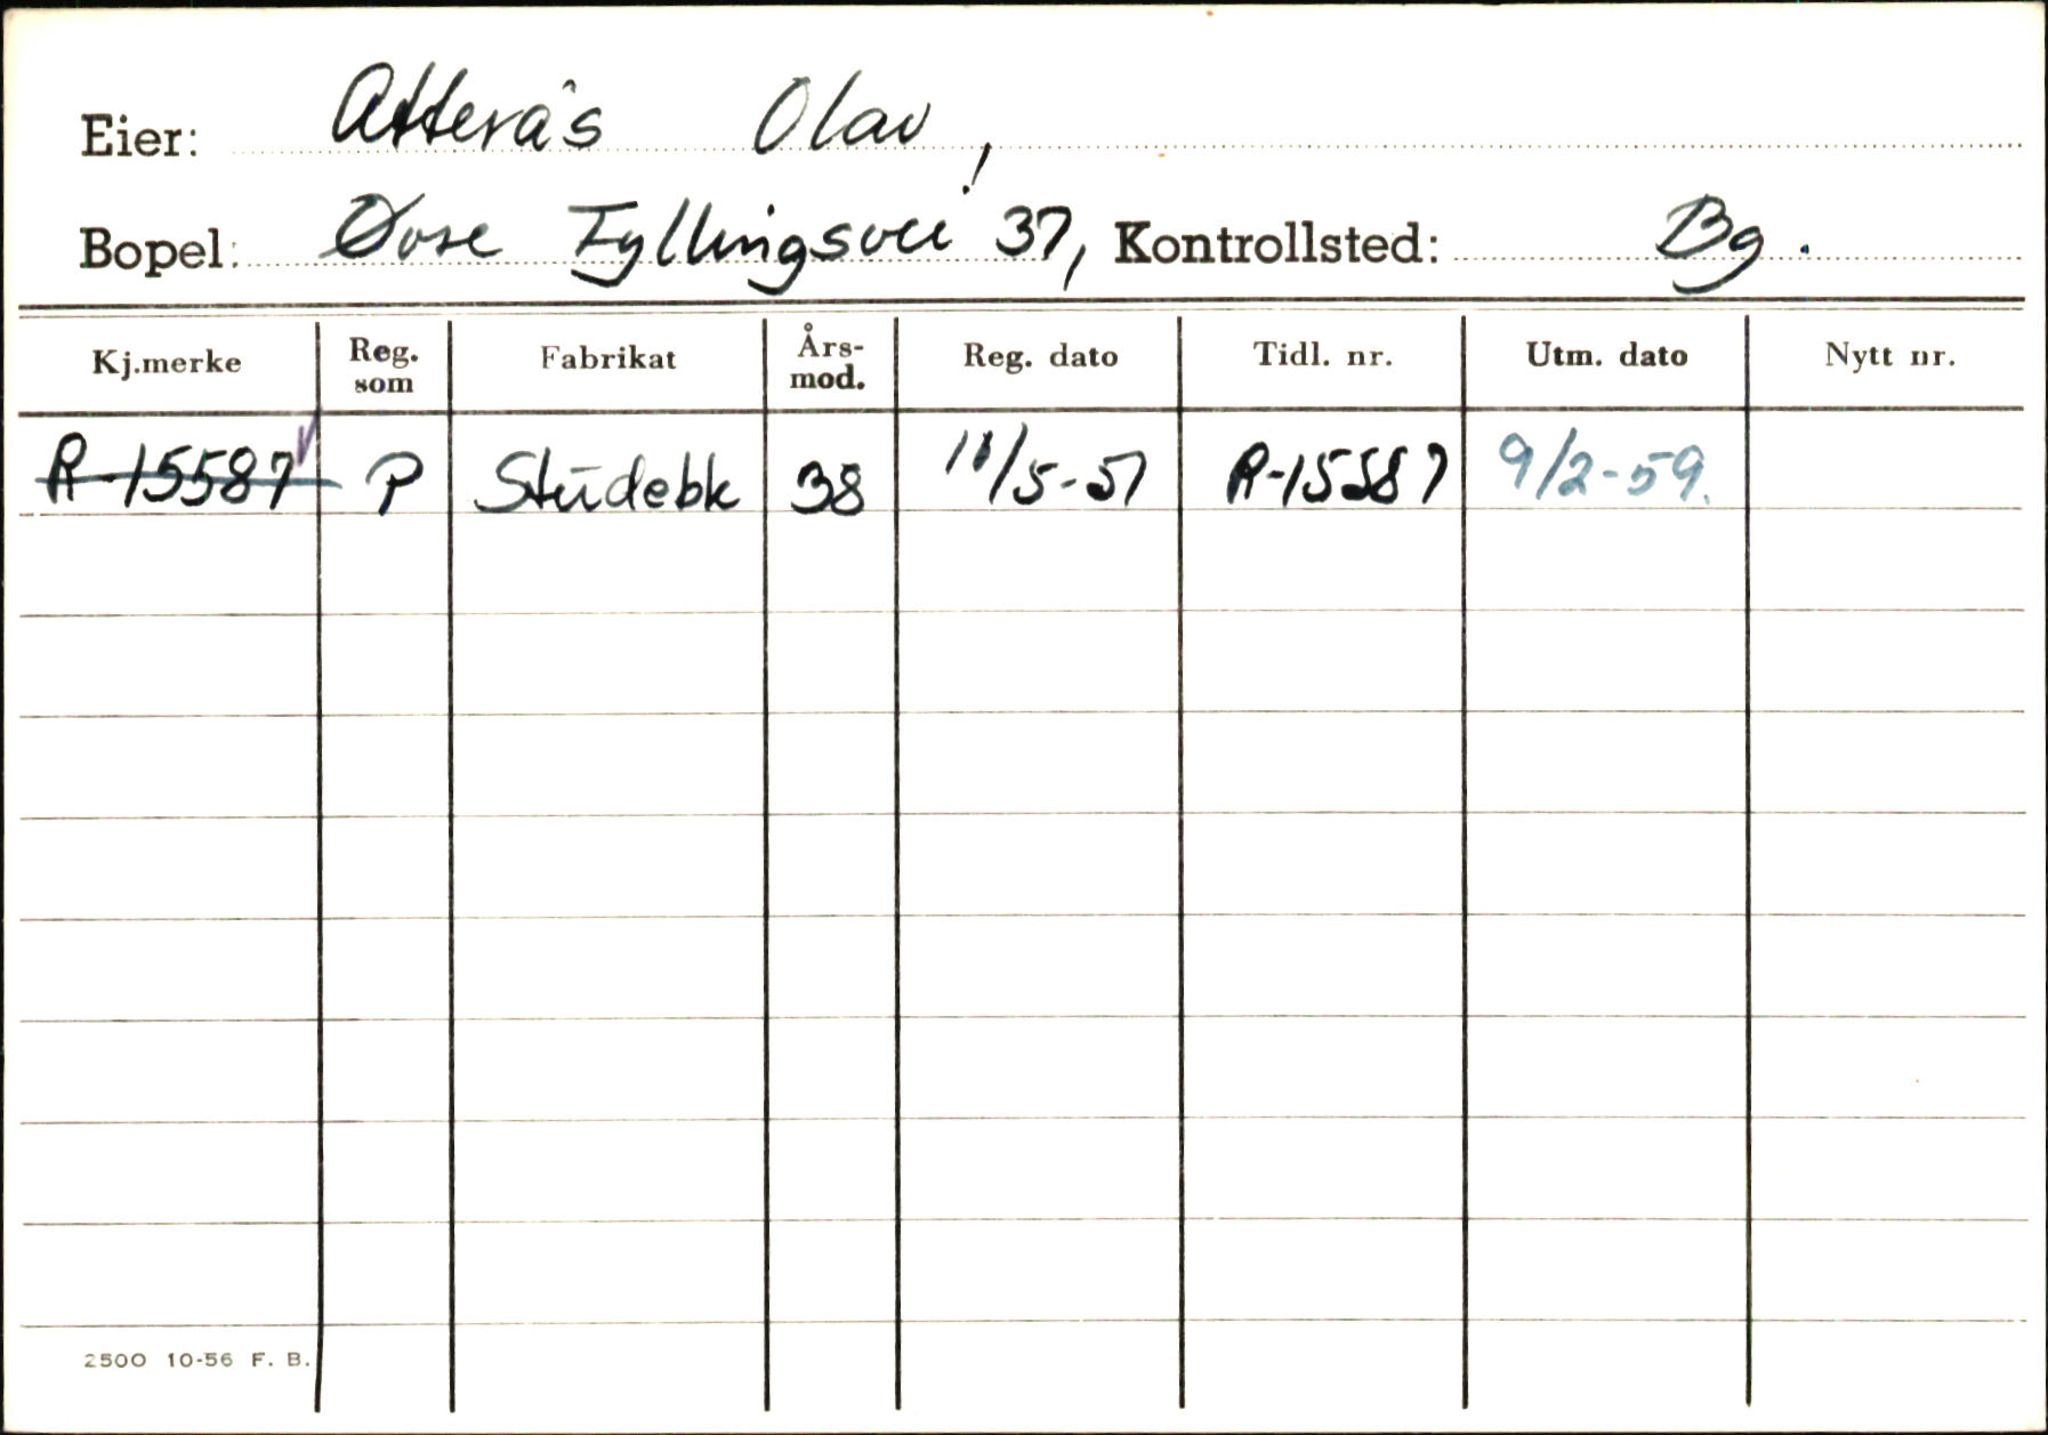 Eier: Atterås Olav,
Bopel: Øvre Fyllingsvei 37, Kontrollsted: Bg.
Kj.merke Reg. som Fabrikat Års-mod. Reg. dato Tidl. nr. Utm. dato Nytt nr.
R-15587 P Studebk 38 /5-57 R-15587 9/2-59.
2500 10-56 F. B.